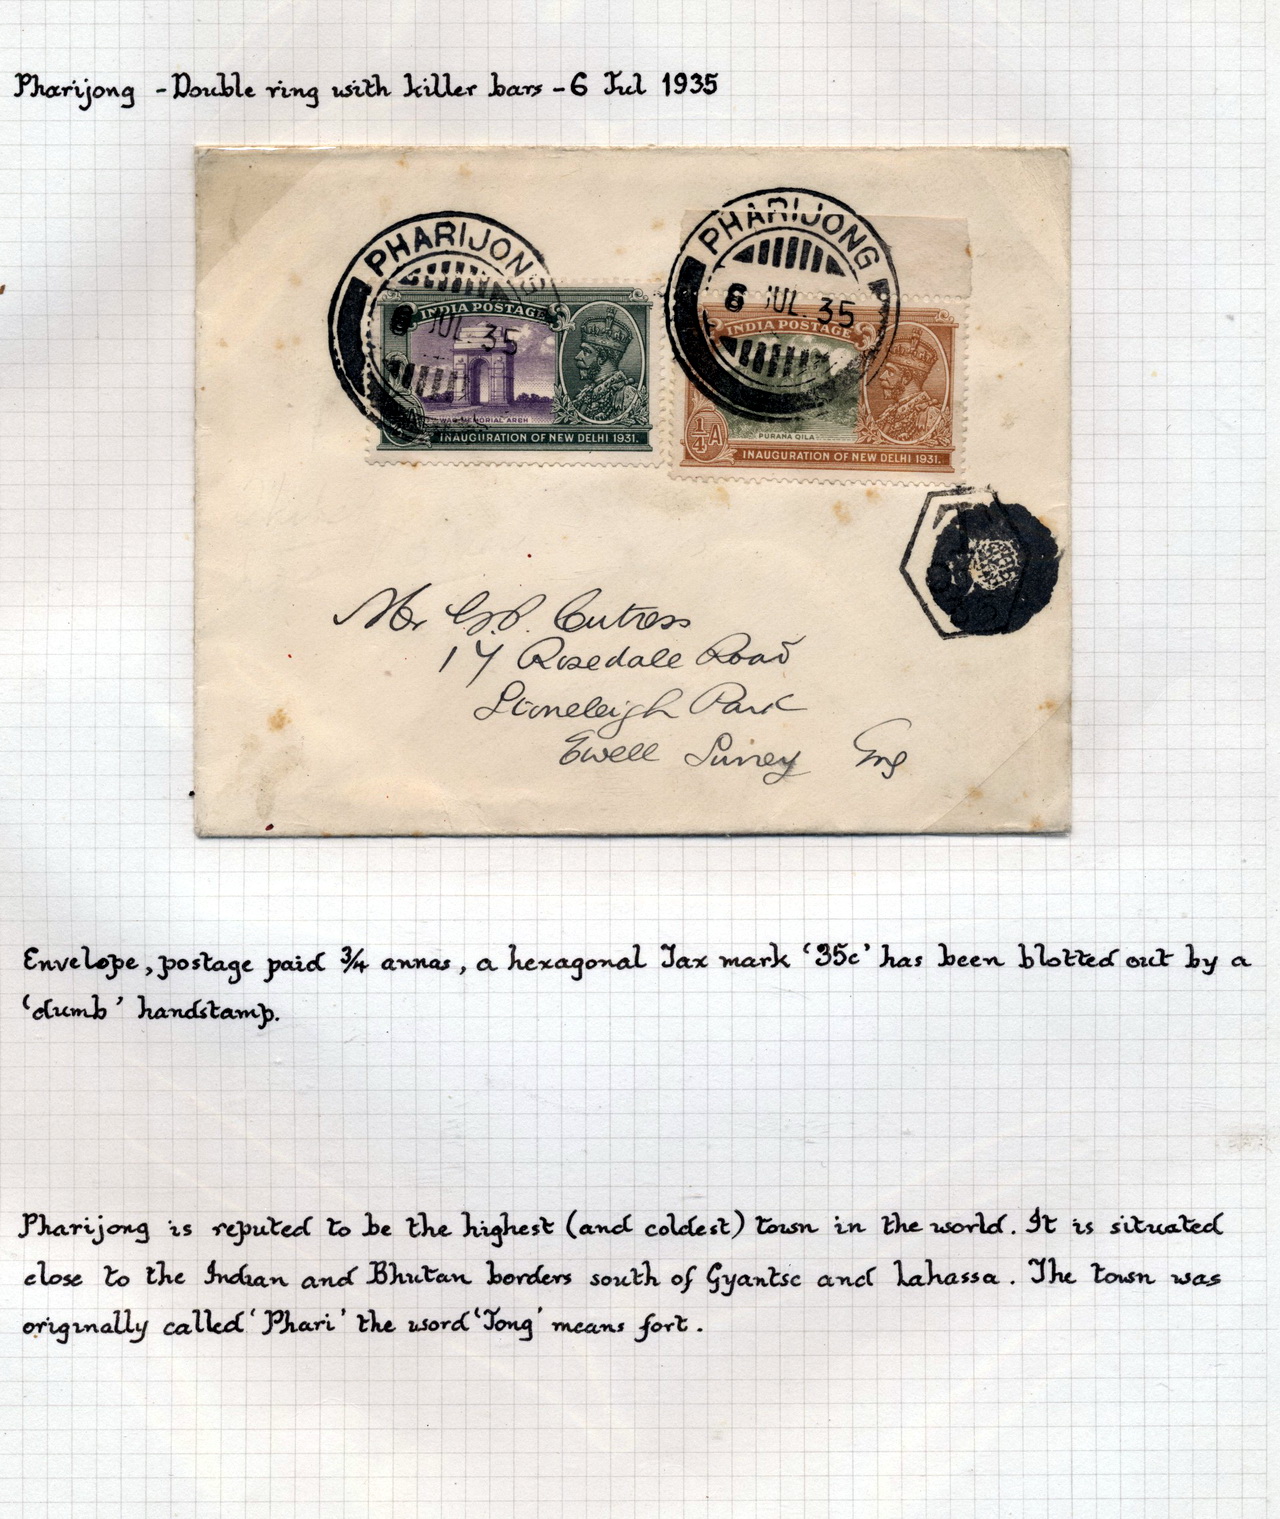 Pharijong - Double ring with killer bars - 6 Jul 1935
PHARIJONG
6 JUL. 35
INDIA POSTAGE
WAR MEMORIAL ARCH
INAUGURATION OF NEW DELHI 1931.
PHARIJONG
6 JUL. 35
INDIA POSTAGE
PURANA QILA
1/4 A
INAUGURATION OF NEW DELHI 1931.
Mr G.P. Cutress
17 Rosedale Road
Stoneleigh Park
Ewell Surrey Eng
Envelope, postage paid 3/4 annas, a hexagonal Tax mark '35c' has been blotted out by a
'dumb' handstamp.
Pharijong is reputed to be the highest (and coldest) town in the world. It is situated
close to the Indian and Bhutan borders south of Gyantse and Lahassa. The town was
originally called 'Phari' the word 'Jong' means fort.